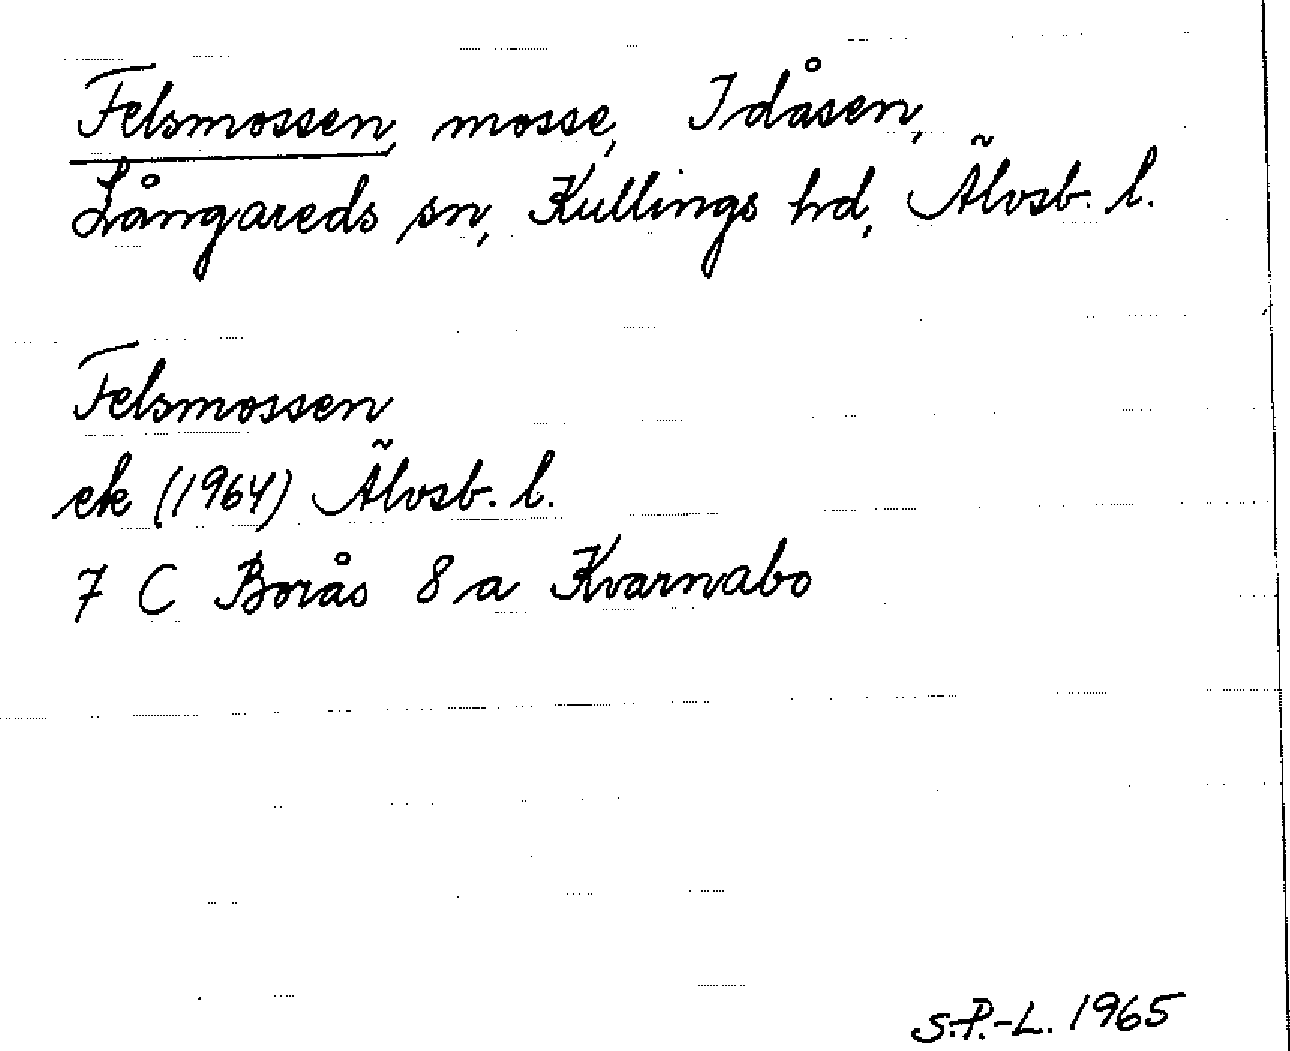 Felsmossen, mosse, Idåsen,
Långareds sn, Kullings hd, Älvsb. l.
Felsmossen
ek (1964) Älvsb. l.
7 C Borås 8 a Kvarnabo
S.P.-L. 1965